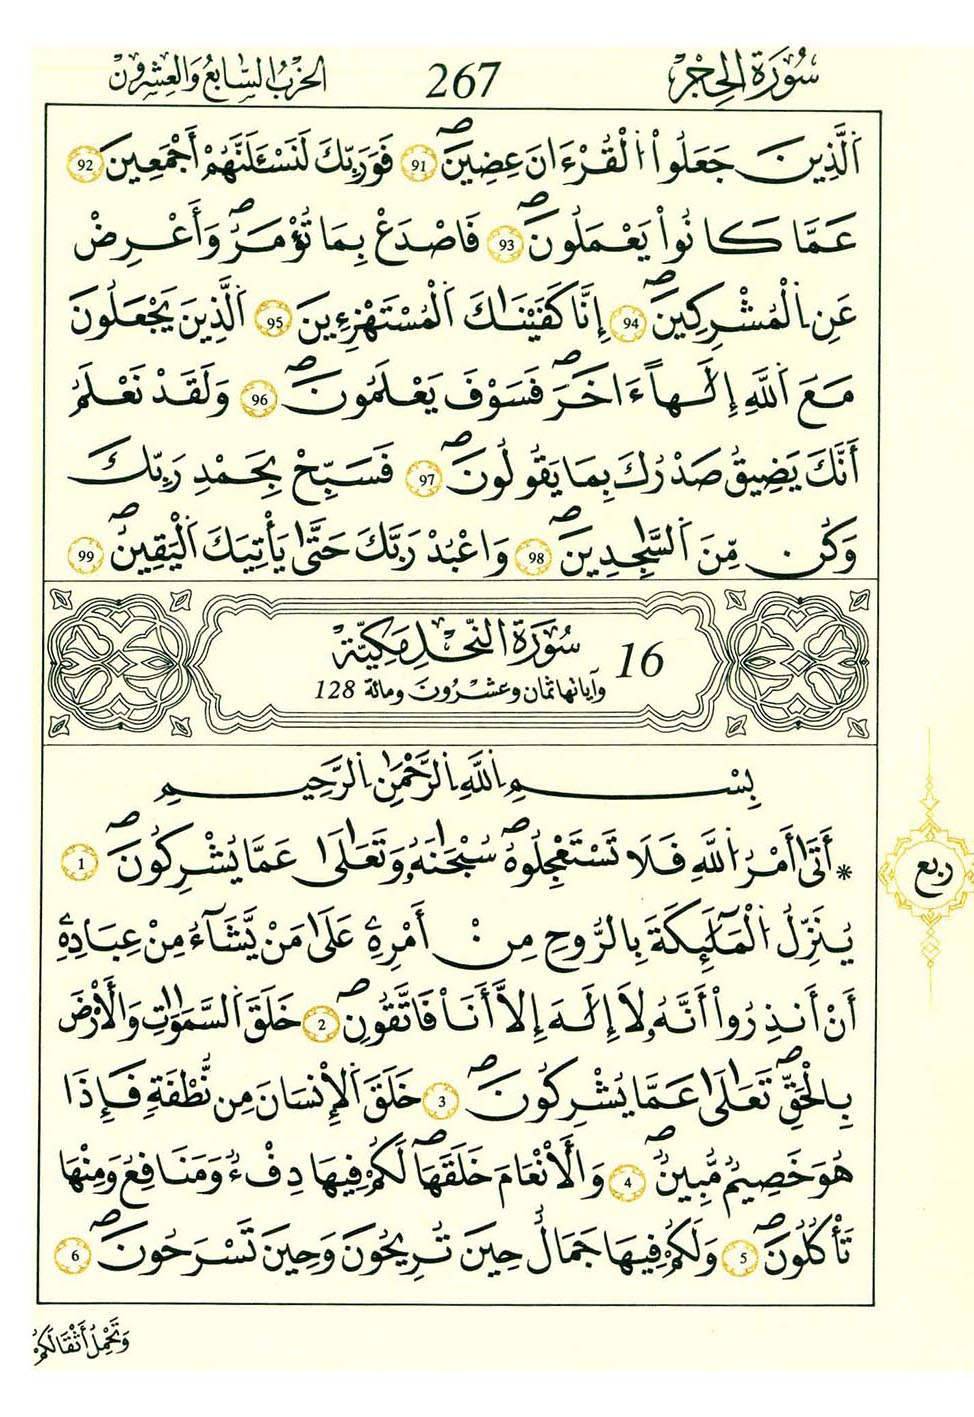 سُورَةُ الحِجْرِ 267 الحِزْبُ السَّابِعُ وَالعِشْرُونَ
اَ۬لذِينَ جَعَلُواْ اُ۬لْقُرْءَانَ عِضِينَۖ 91 فَوَرَبِّكَ لَنَسْـَٔلَنَّهُمْ أَجْمَعِينَ 92
عَمَّا كَانُواْ يَعْمَلُونَۖ 93 فَاصْدَعْ بِمَا تُؤْمَرُۖ وَأَعْرِضْ
عَنِ اِ۬لْمُشْرِكِينَۖ 94 إِنَّا كَفَيْنَٰكَ اَ۬لْمُسْتَهْزِءِينَ 95 اَ۬لذِينَ يَجْعَلُونَ
مَعَ اَ۬للَّهِ إِلَٰهاً ءَاخَرَۖ فَسَوْفَ يَعْلَمُونَۖ 96 وَلَقَدْ نَعْلَمُ
أَنَّكَ يَضِيقُ صَدْرُكَ بِمَا يَقُولُونَۖ 97 فَسَبِّحْ بِحَمْدِ رَبِّكَ
وَكُن مِّنَ اَ۬لسَّٰجِدِينَۖ 98 وَاعْبُدْ رَبَّكَ حَتَّىٰ يَأْتِيَكَ اَ۬لْيَقِينُۖ 99
16 سُورَةُ النَّحْلِ مَكِيَّة
وآياتها ثمان وعشرون ومائة 128
بِسْمِ اِ۬للَّهِ اِ۬لرَّحْمَٰنِ اِ۬لرَّحِيمِ
* أَتَىٰ أَمْرُ اُ۬للَّهِ فَلَا تَسْتَعْجِلُوهُۖ سُبْحَٰنَهُۥ وَتَعَٰلَىٰ عَمَّا يُشْرِكُونَۖ 1
ربع
يُنَزِّلُ اُ۬لْمَلَٰٓئِكَةَ بِالرُّوحِ مِنْ أَمْرِهِۦ عَلَىٰ مَنْ يَّشَآءُ مِنْ عِبَادِهِۦ
أَنْ أَنذِرُواْ أَنَّهُۥ لَا إِلَٰهَ إِلَّا أَنَا۟ فَاتَّقُونِۖ 2 خَلَقَ اَ۬لسَّمَٰوَٰتِ وَالْأَرْضَ
بِالْحَقِّۖ تَعَٰلَىٰ عَمَّا يُشْرِكُونَۖ 3 خَلَقَ اَ۬لْإِنسَانَ مِن نُّطْفَةٍ فَإِذَا
هُوَ خَصِيمٌ مُّبِينٌۖ 4 وَالْأَنْعَامَ خَلَقَهَاۖ لَكُمْ فِيهَا دِفْءٌ وَمَنَافِعُ وَمِنْهَا
تَأْكُلُونَۖ 5 وَلَكُمْ فِيهَا جَمَالٌ حِينَ تُرِيحُونَ وَحِينَ تَسْرَحُونَۖ 6
وَتَحْمِلُ أَثْقَالَكُمْ